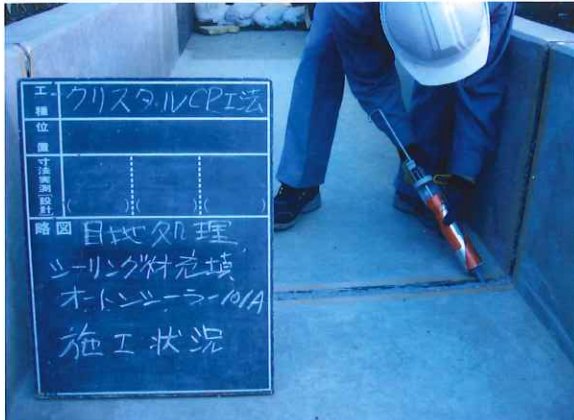 工種 クリスタルCP工法
位置
寸法実測[設計]
( ) ( ) ( )
略図 目地処理
シーリング材充填
オートンシーラー101A
施工状況